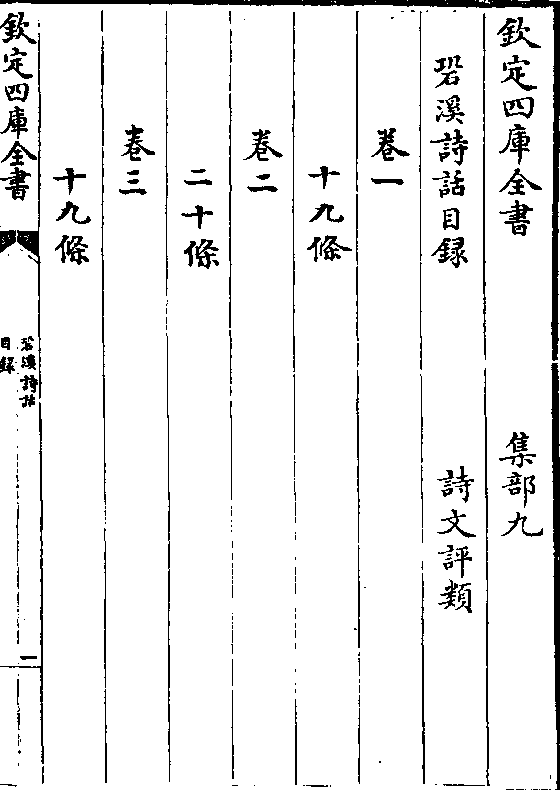 欽定四庫全書 集部九
䂬溪詩話目録 詩文評類
卷一
十九條
卷二
二十條
卷三
十九條
欽定四庫全書
䂬溪詩話
目録
一